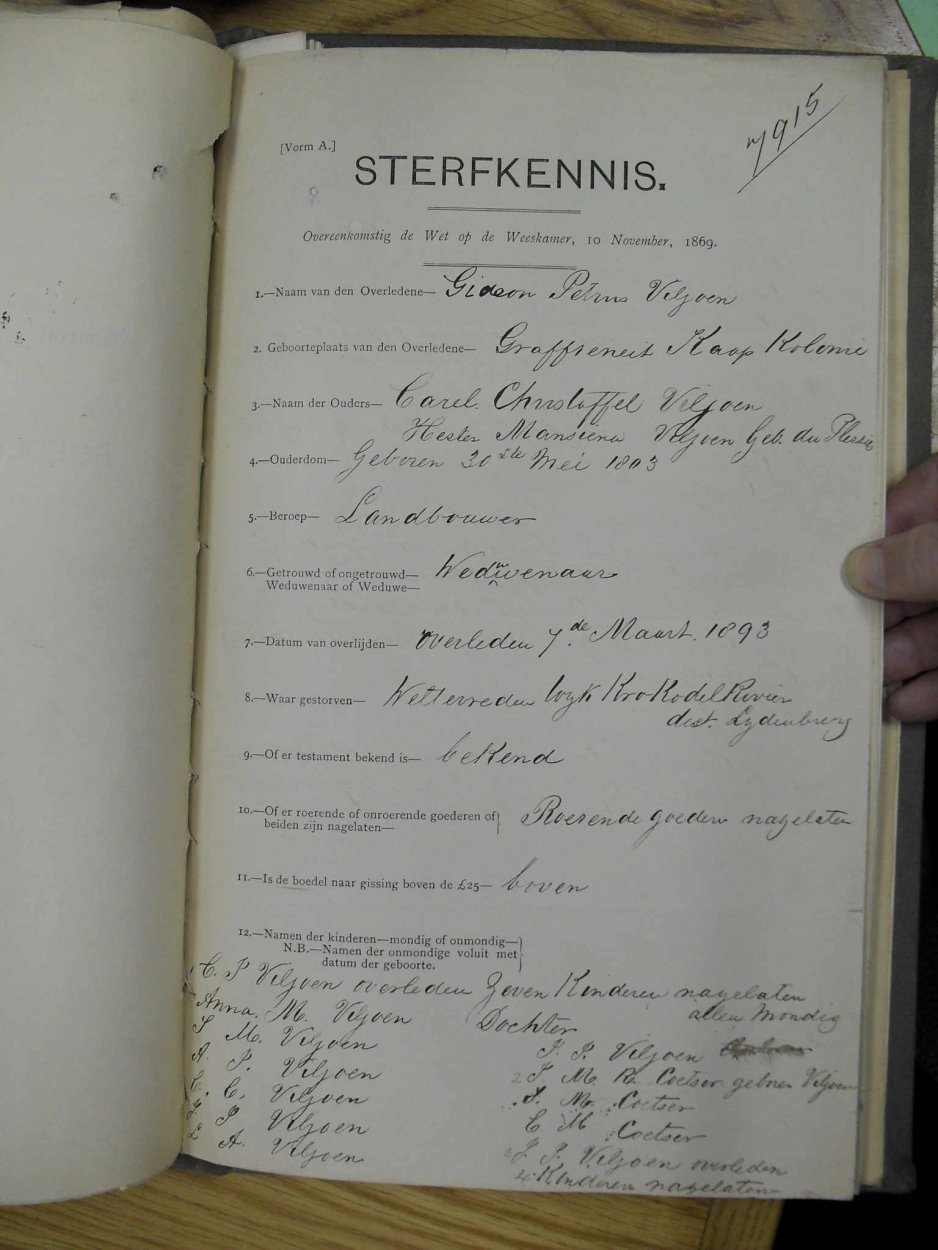 7915
[Vorm A.]
STERFKENNIS.
Overeenkomstig de Wet op de Weeskamer, 10 November, 1869.
1.—Naam van den Overledene— Gideon Petrus Viljoen
2. Geboorteplaats van den Overledene— Graffreneit Kaap Kolonie
3.—Naam der Ouders— Carel Christoffel Viljoen
Hester Mansiena Viljoen Geb. du Plessis
4.—Ouderdom— Geboren 30ste Mei 1803
5.—Beroep— Landbouwer
6.—Getrouwd of ongetrouwd— Weduwenaar
Weduwenaar of Weduwe—
7.—Datum van overlijden— overleden 7de Maart 1893
8.—Waar gestorven— Weltevreden Wyk Krokodel Rivier
dist. Lydenburg
9.—Of er testament bekend is— bekend
10.—Of er roerende of onroerende goederen of} Roerende goedere nagelaten
beiden zijn nagelaten—
11.—Is de boedel naar gissing boven de £25— boven
12.—Namen der kinderen—mondig of onmondig—}
N.B.—Namen der onmondige voluit met
datum der geboorte.
C. P Viljoen overleden Zeven Kinderen nagelaten
Anna. M. Viljoen Dochter allen Mondig
S M. Viljoen
A P. Viljoen
C. C. Viljoen
P Viljoen
A. Viljoen
P. P. Viljoen
2 M R. Coetser geboren Viljoen
S. M. Coetser
C M Coetser
3 J. P. Viljoen overleden
4 Kinderen nagelaten